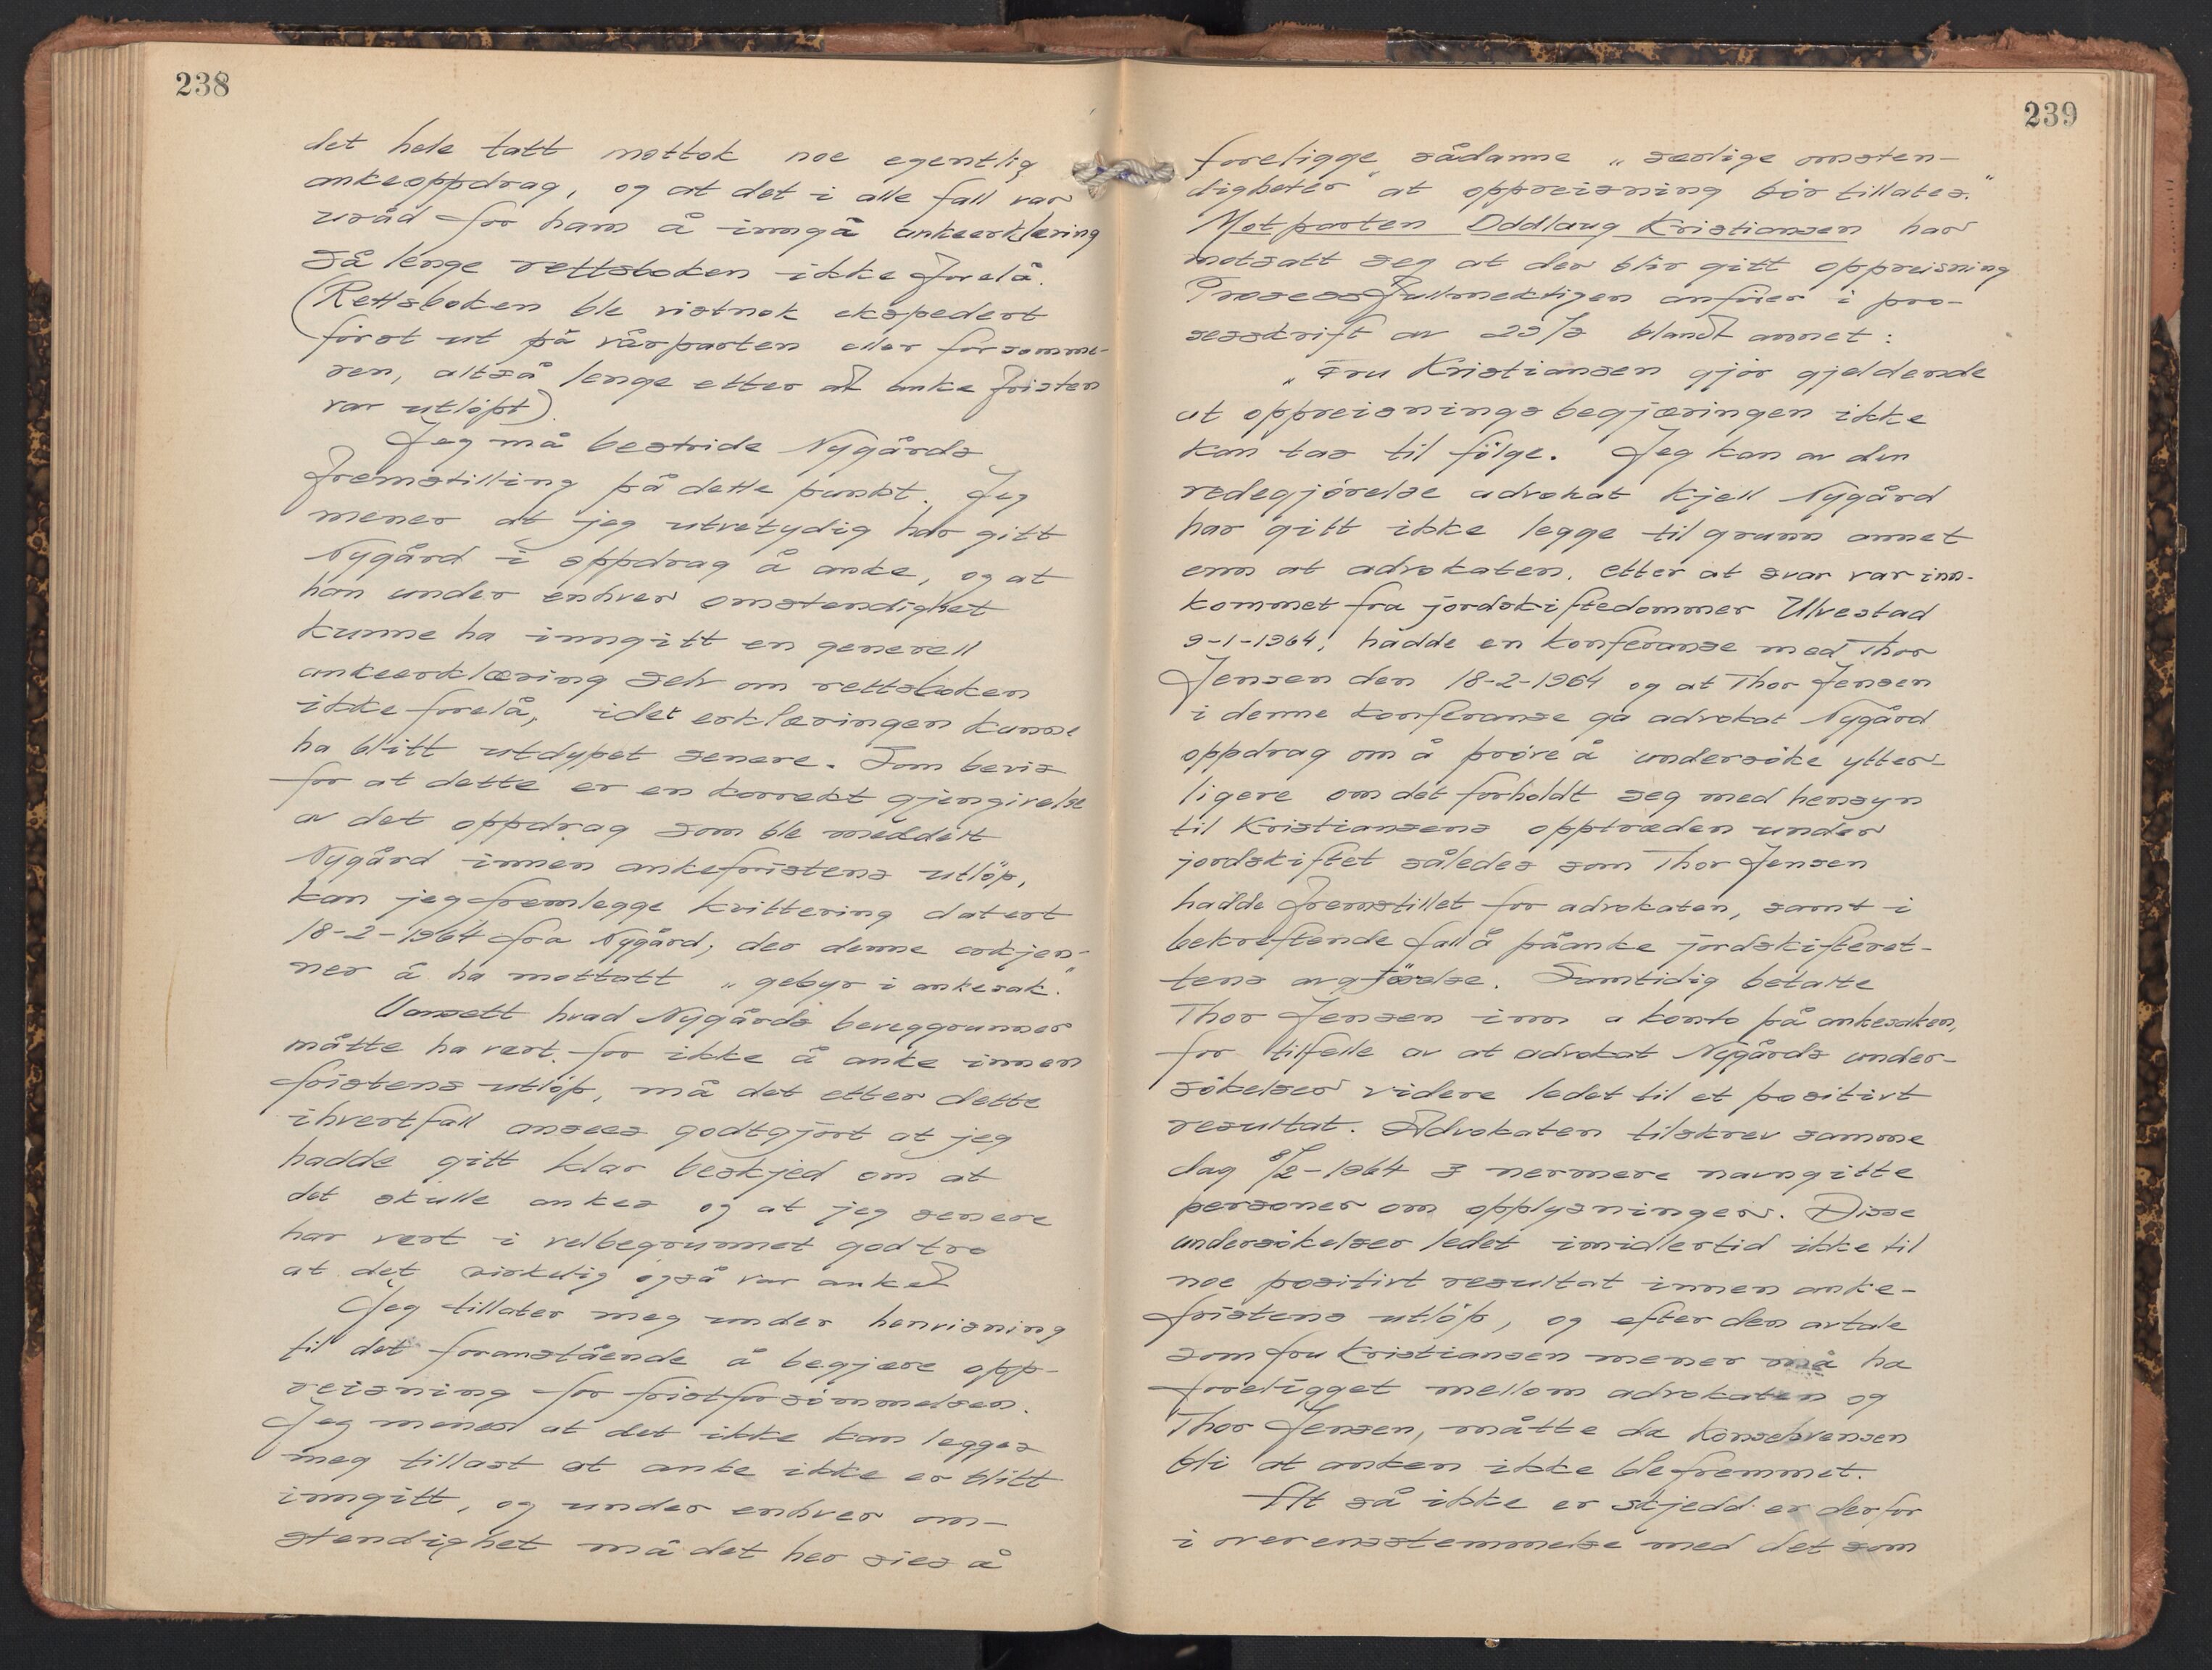 238
det hele tatt mottok noe egentlig
ankeoppdrag, og at det i alle fall var
uråd for ham å inngå ankeerklæring
så lenge rettsboken ikke forelå.
(Rettsboken ble vistnok ekspedert
först ut på vårparten eller forsomme-
ren, altså lenge etter at anke fristen
var utlöpt).
Jeg må bestride Nygårds
fremstilling på dette punkt. Jeg
mener at jeg utvetydig har gitt
Nygård i oppdrag å anke, og at
han under enhver omstendighet
kunne ha inngitt en generell
ankeerklæring selv om rettsboken
ikke forelå, idet erklæringen kunne
ha blitt utdypet senere. Som bevis
for at dette er en korrekt gjengivelse
av det oppdrag som ble meddelt
Nygård innen ankefristens utlöp,
kan jeg fremlegge kvittering datert
18-2-1964 fra Nygård, der denne erkjen-
ner å ha mottatt „gebyr i ankesak."
Uansett hvad Nygårds beveggrunner
måtte ha vert for ikke å anke innen
fristens utlöp, må det etter dette
ihvertfall ansees godtgjort at jeg
hadde gitt klar beskjed om at
det skulle ankes og at jeg senere
har vert i velbegrunnet god tro
at det virkelig også var anket
Jeg tillater meg under henvisning
til det foranstående å begjære opp-
reisning for fristforsömmelsen.
Jeg mener at det ikke kan legges
meg tillast at anke ikke er blitt
inngitt, og under enhver om-
stendighet må det her sies å
239
foreligge sådanne „særlige omsten-
digheter" at oppreisning bör tillates."
Motparten Oddlaug Kristiansen har
motsatt seg at der blir gitt oppreisning
Prosessfullmektigen anförer i pro-
sesskrift av 29/3 blandt annet:
„Fru Kristiansen gjör gjeldende
at oppreisningsbegjæringen ikke
kan tas til fölge. Jeg kan av den
redegjörelse advokat Kjell Nygård
har gitt ikke legge til grunn annet
enn at advokaten, etter at svar var inn-
kommet fra jordskiftedommer Ulvestad
9-1-1964, hadde en konferanse med Thor
Jensen den 18-2-1964 og at Thor Jensen
i denne konferanse ga advokat Nygård
oppdrag om å pröve å undersöke ytter-
ligere om det forholdt seg med hensyn
til Kristiansens opptreden under
jordskiftet således som Thor Jensen
hadde fremstillet for advokaten, samt i
bekreftende fall å påanke jordskifteret-
tens avgjörelse. Samtidig betalte
Thor Jensen inn a konto på ankesaken,
for tilfelle av at advokat Nygårds under-
sökelser videre ledet til et positivt
resultat. Advokaten tilskrev samme
dag /2-1964 3 nermere navngitte
personer om opplysninger. Disse
undersökelser ledet imidlertid ikke til
noe positivt resultat innen anke-
fristens utlöp, og efter den avtale
som fru Kristiansen mener må ha
foreligget mellom advokaten og
Thor Jensen, måtte da konsekvensen
bli at anken ikke ble fremmet.
At så ikke er skjedd er derfor
i overensstemmelse med det som